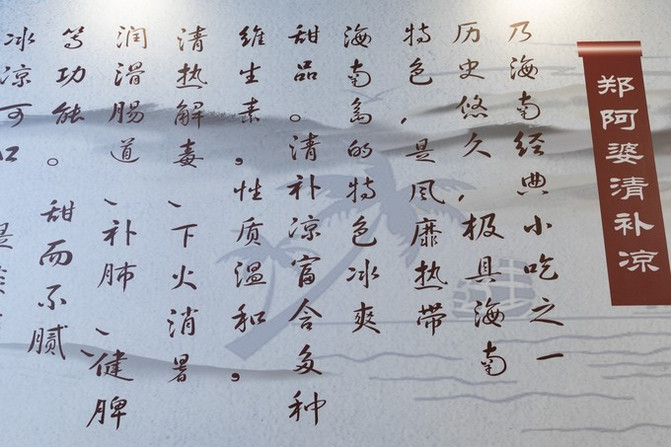 郑阿婆清补凉
乃海南经典小吃之一
历史悠久，极具海南
特色，是风靡热带
海南岛的特色冰爽
甜品。清补凉富含多种
维生素，性质温和，
清热解毒、下火消暑
润滑肠道、补肺、健脾
等功能。甜而不腻
冰凉可口